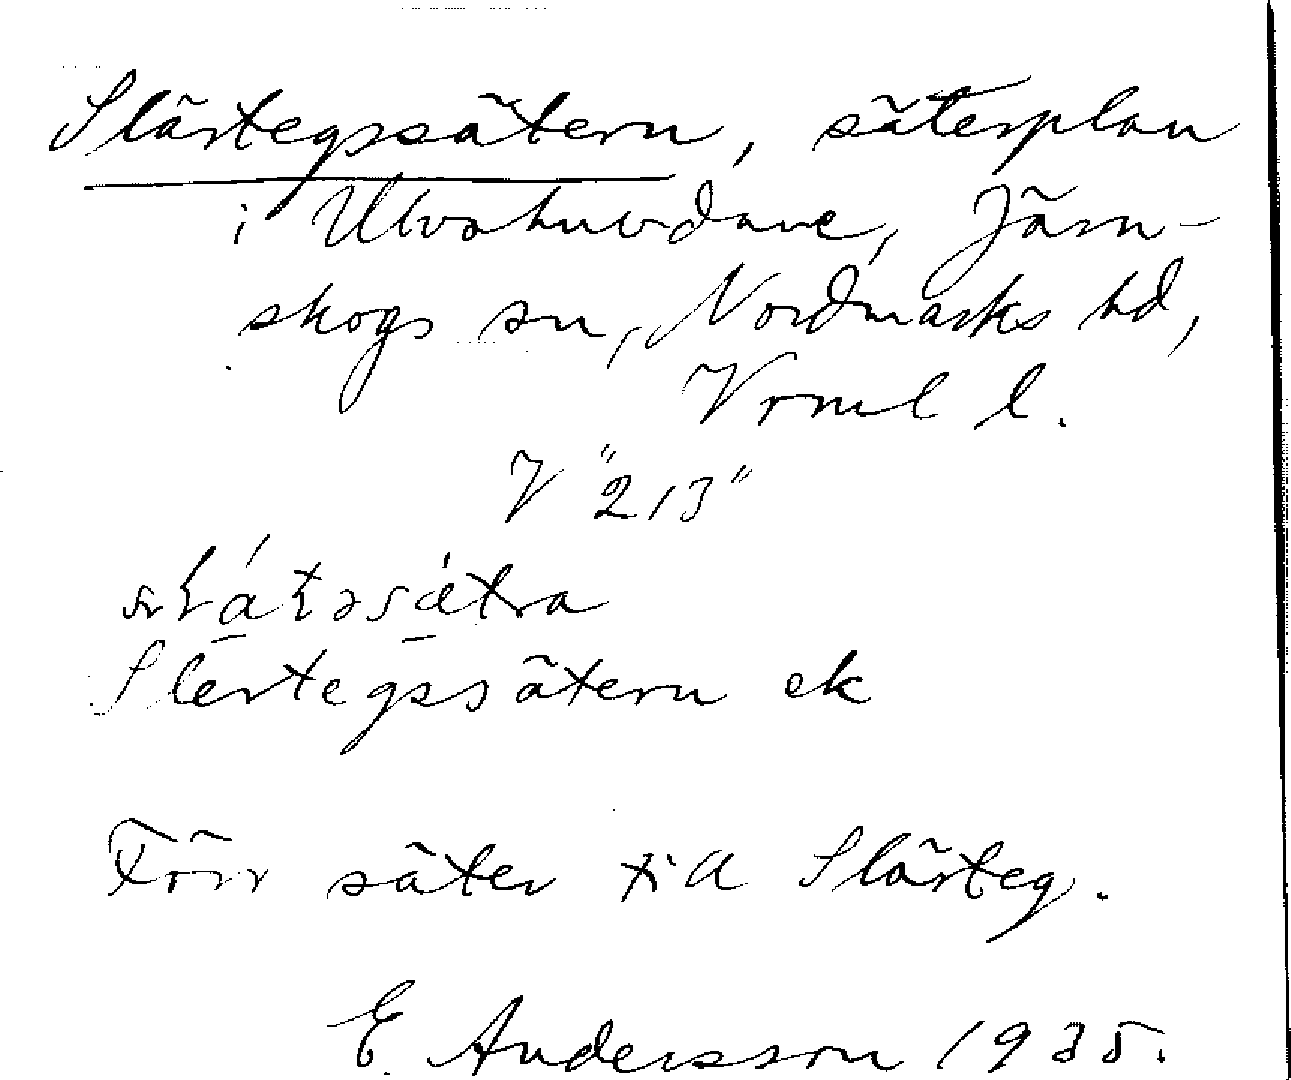 Slärtegssätern, säterplan
i Ulvahuvdane, Järn-
skogs sn, Nordmarks hd,
Vrml l.
V "213"
Slertegssätern ek
Förr säter till Slärteg.
E. Andersson 1935.